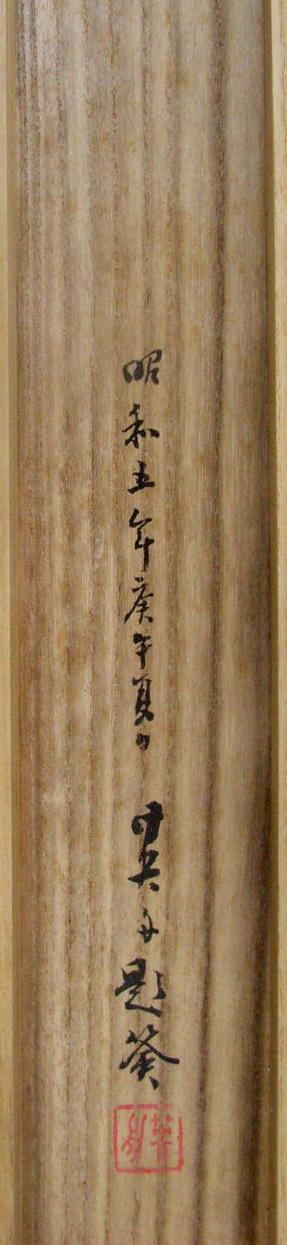 昭和五年庚午夏日 題簽